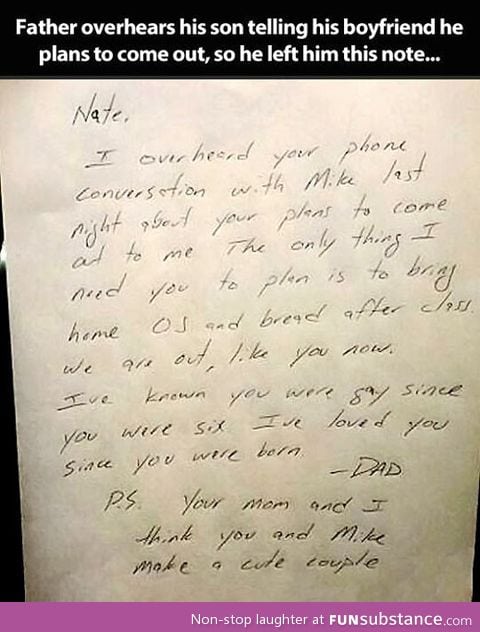 Father overhears his son telling his boyfriend he
plans to come out, so he left him this note...
Nate,
I overheard your phone
conversation with Mike last
night about your plans to come
out to me The only thing I
need you to plan is to bring
home OJ and bread after class.
We are out, like you now.
I've known you were gay since
you were six I've loved you
since you were born.
-DAD
P.S. Your mom and I
think you and Mike
make a cute couple
Non-stop laughter at FUNsubstance.com